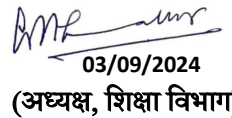 03/09/2024
(अध्यक्ष, शिक्षा विभाग)